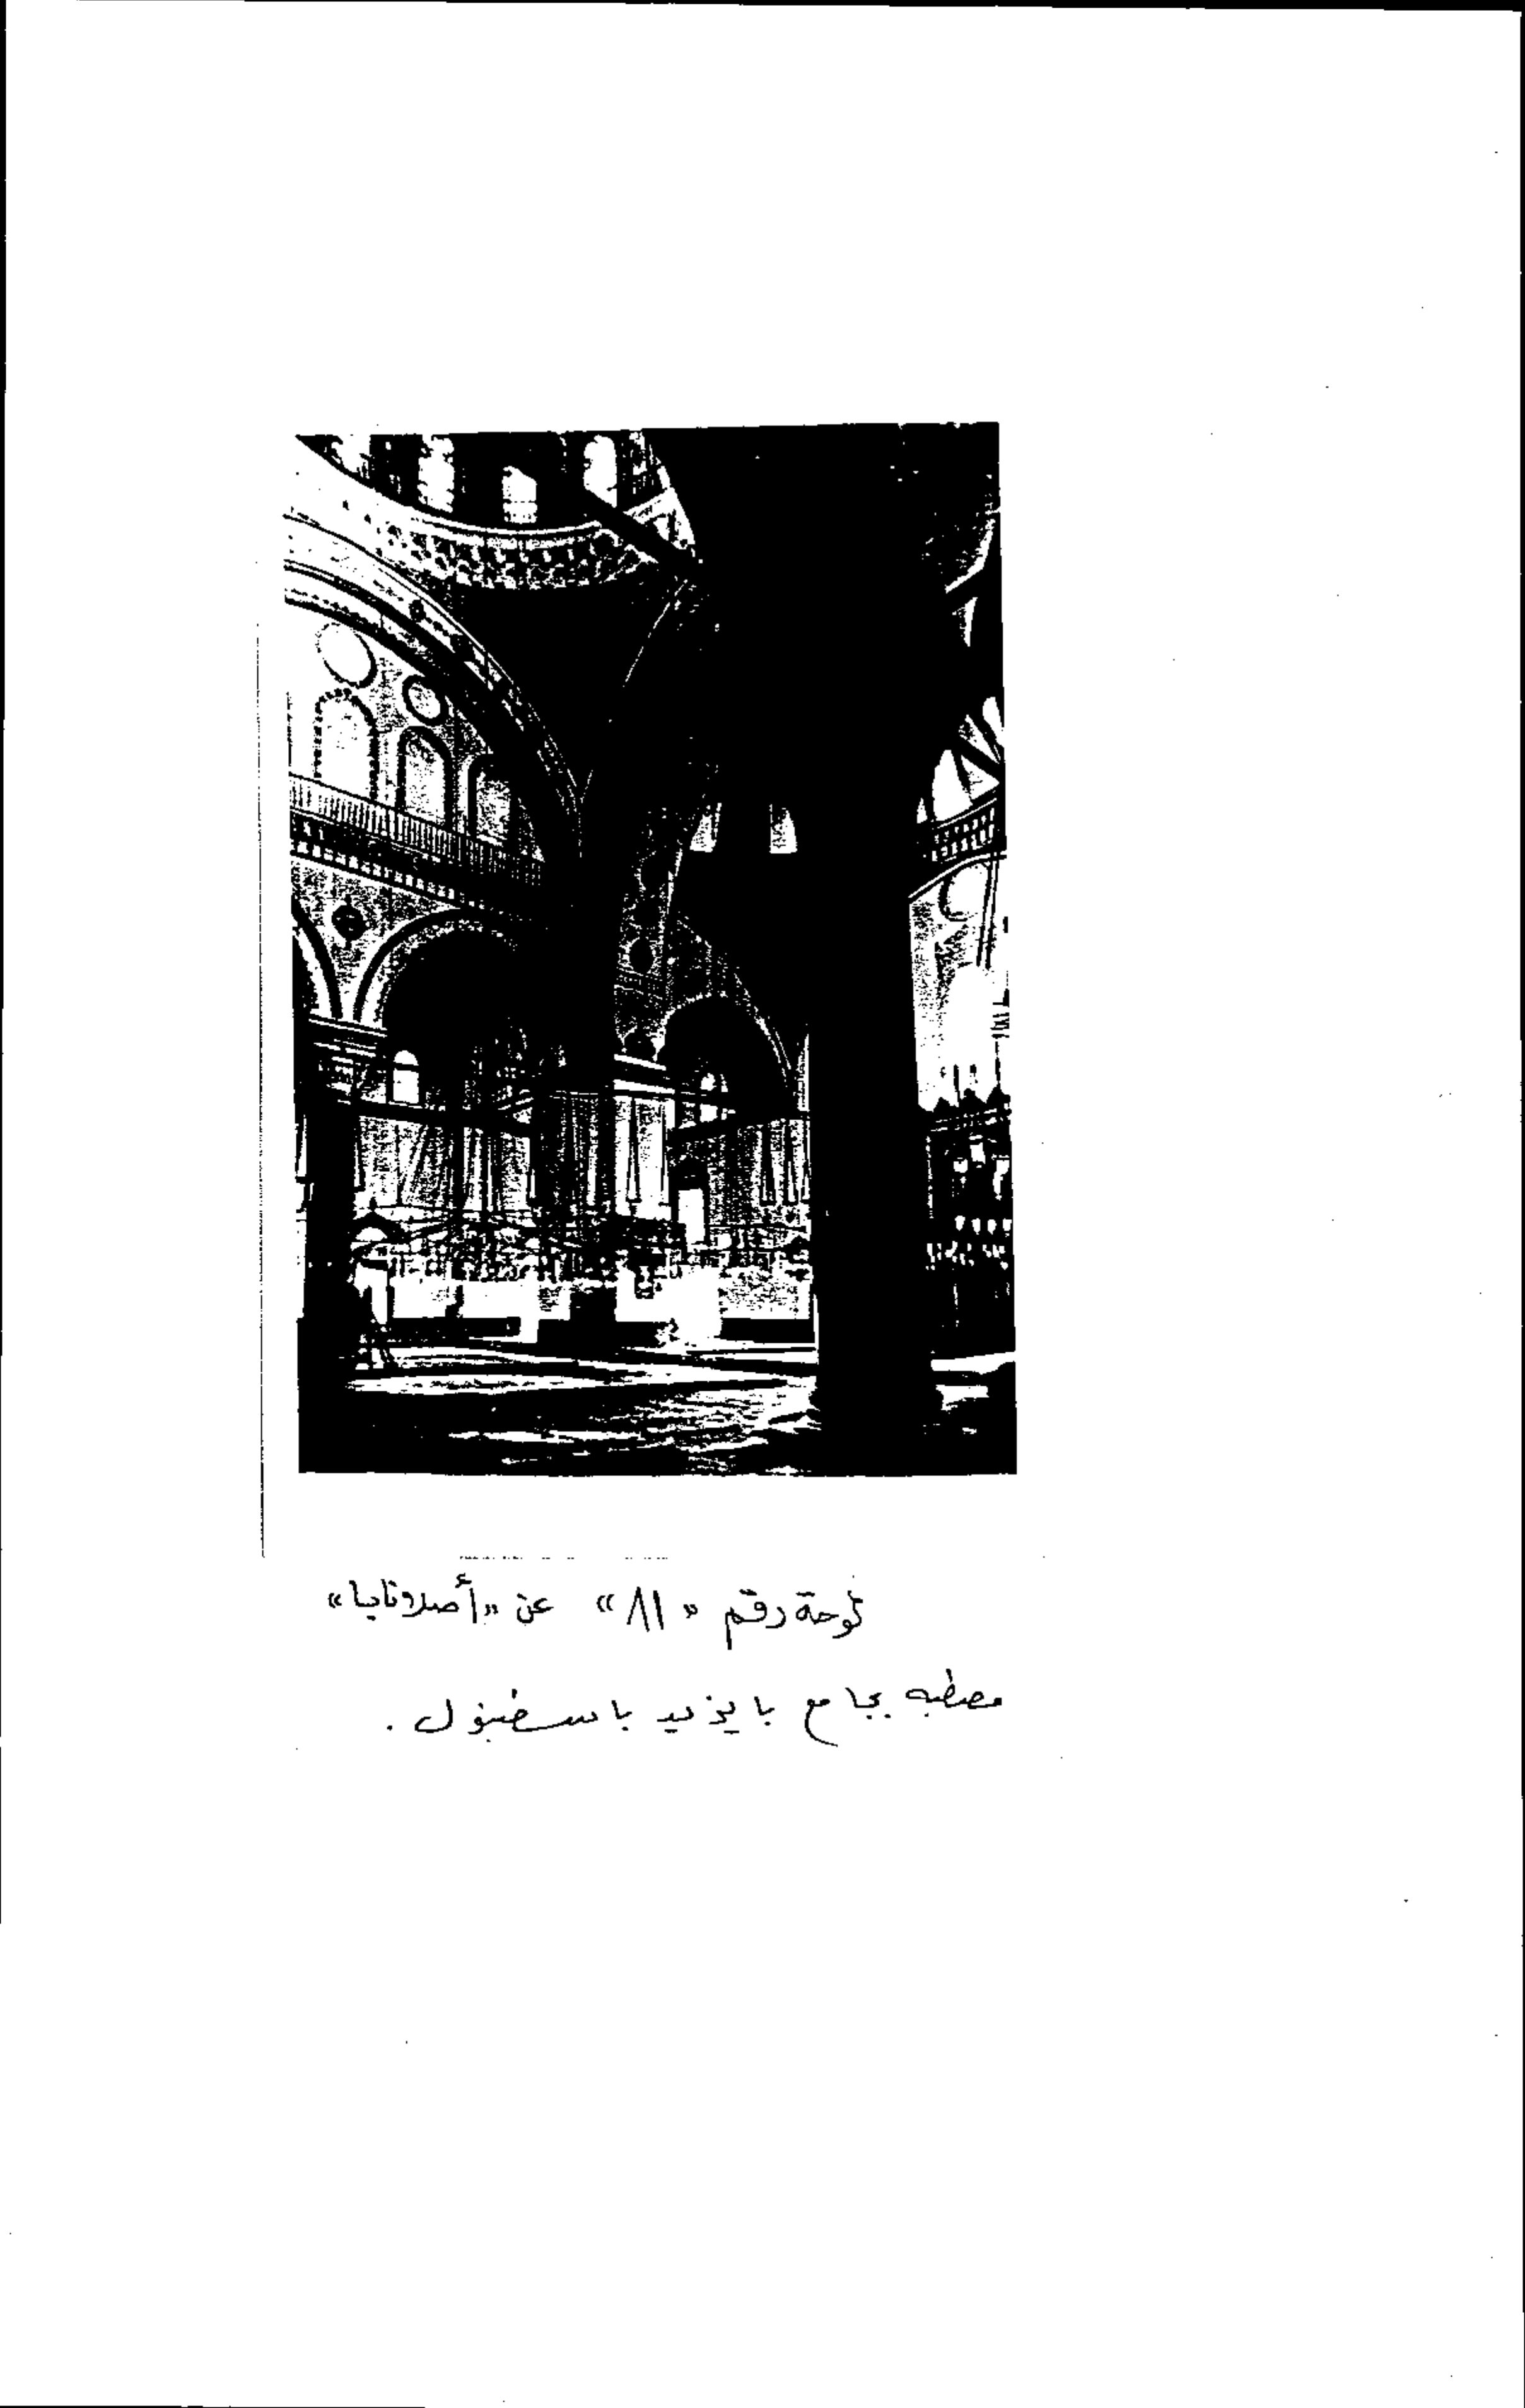 لوحة رقم «٨١» عن «أصلانابا»
مصطبه بجامع بايزيد باسطنبول .